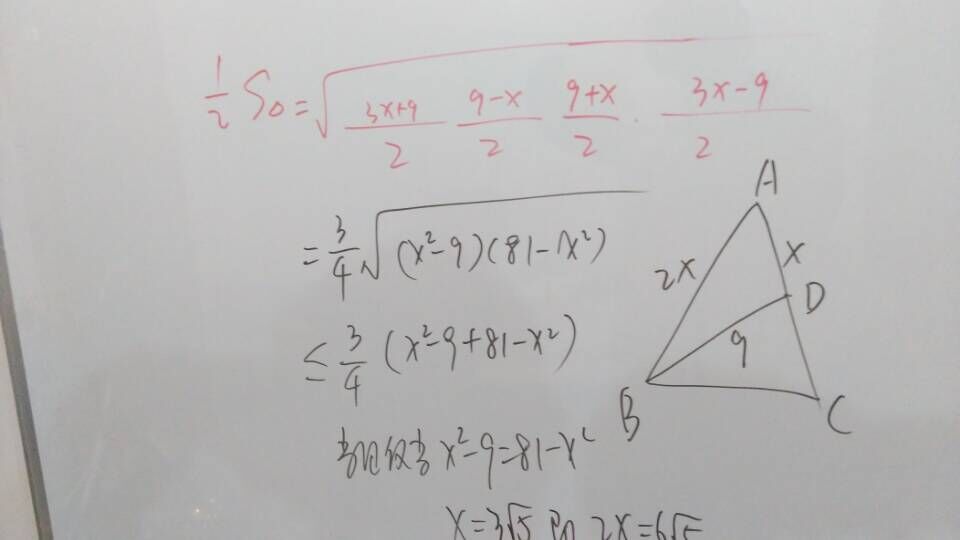 ½ S₀ = √( (3x+9)/2 · (9-x)/2 · (9+x)/2 · (3x-9)/2 )
= 3/4 √( (x²-9)(81-x²) )
≤ 3/4 (x²-9+81-x²)
当且仅当 x²-9=81-x²
x=3√5 即 2x=6√5
A
2x
x
D
9
B
C